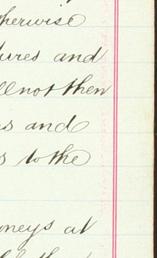 herwise
ures and
ll not then
s and
s to the
neys at